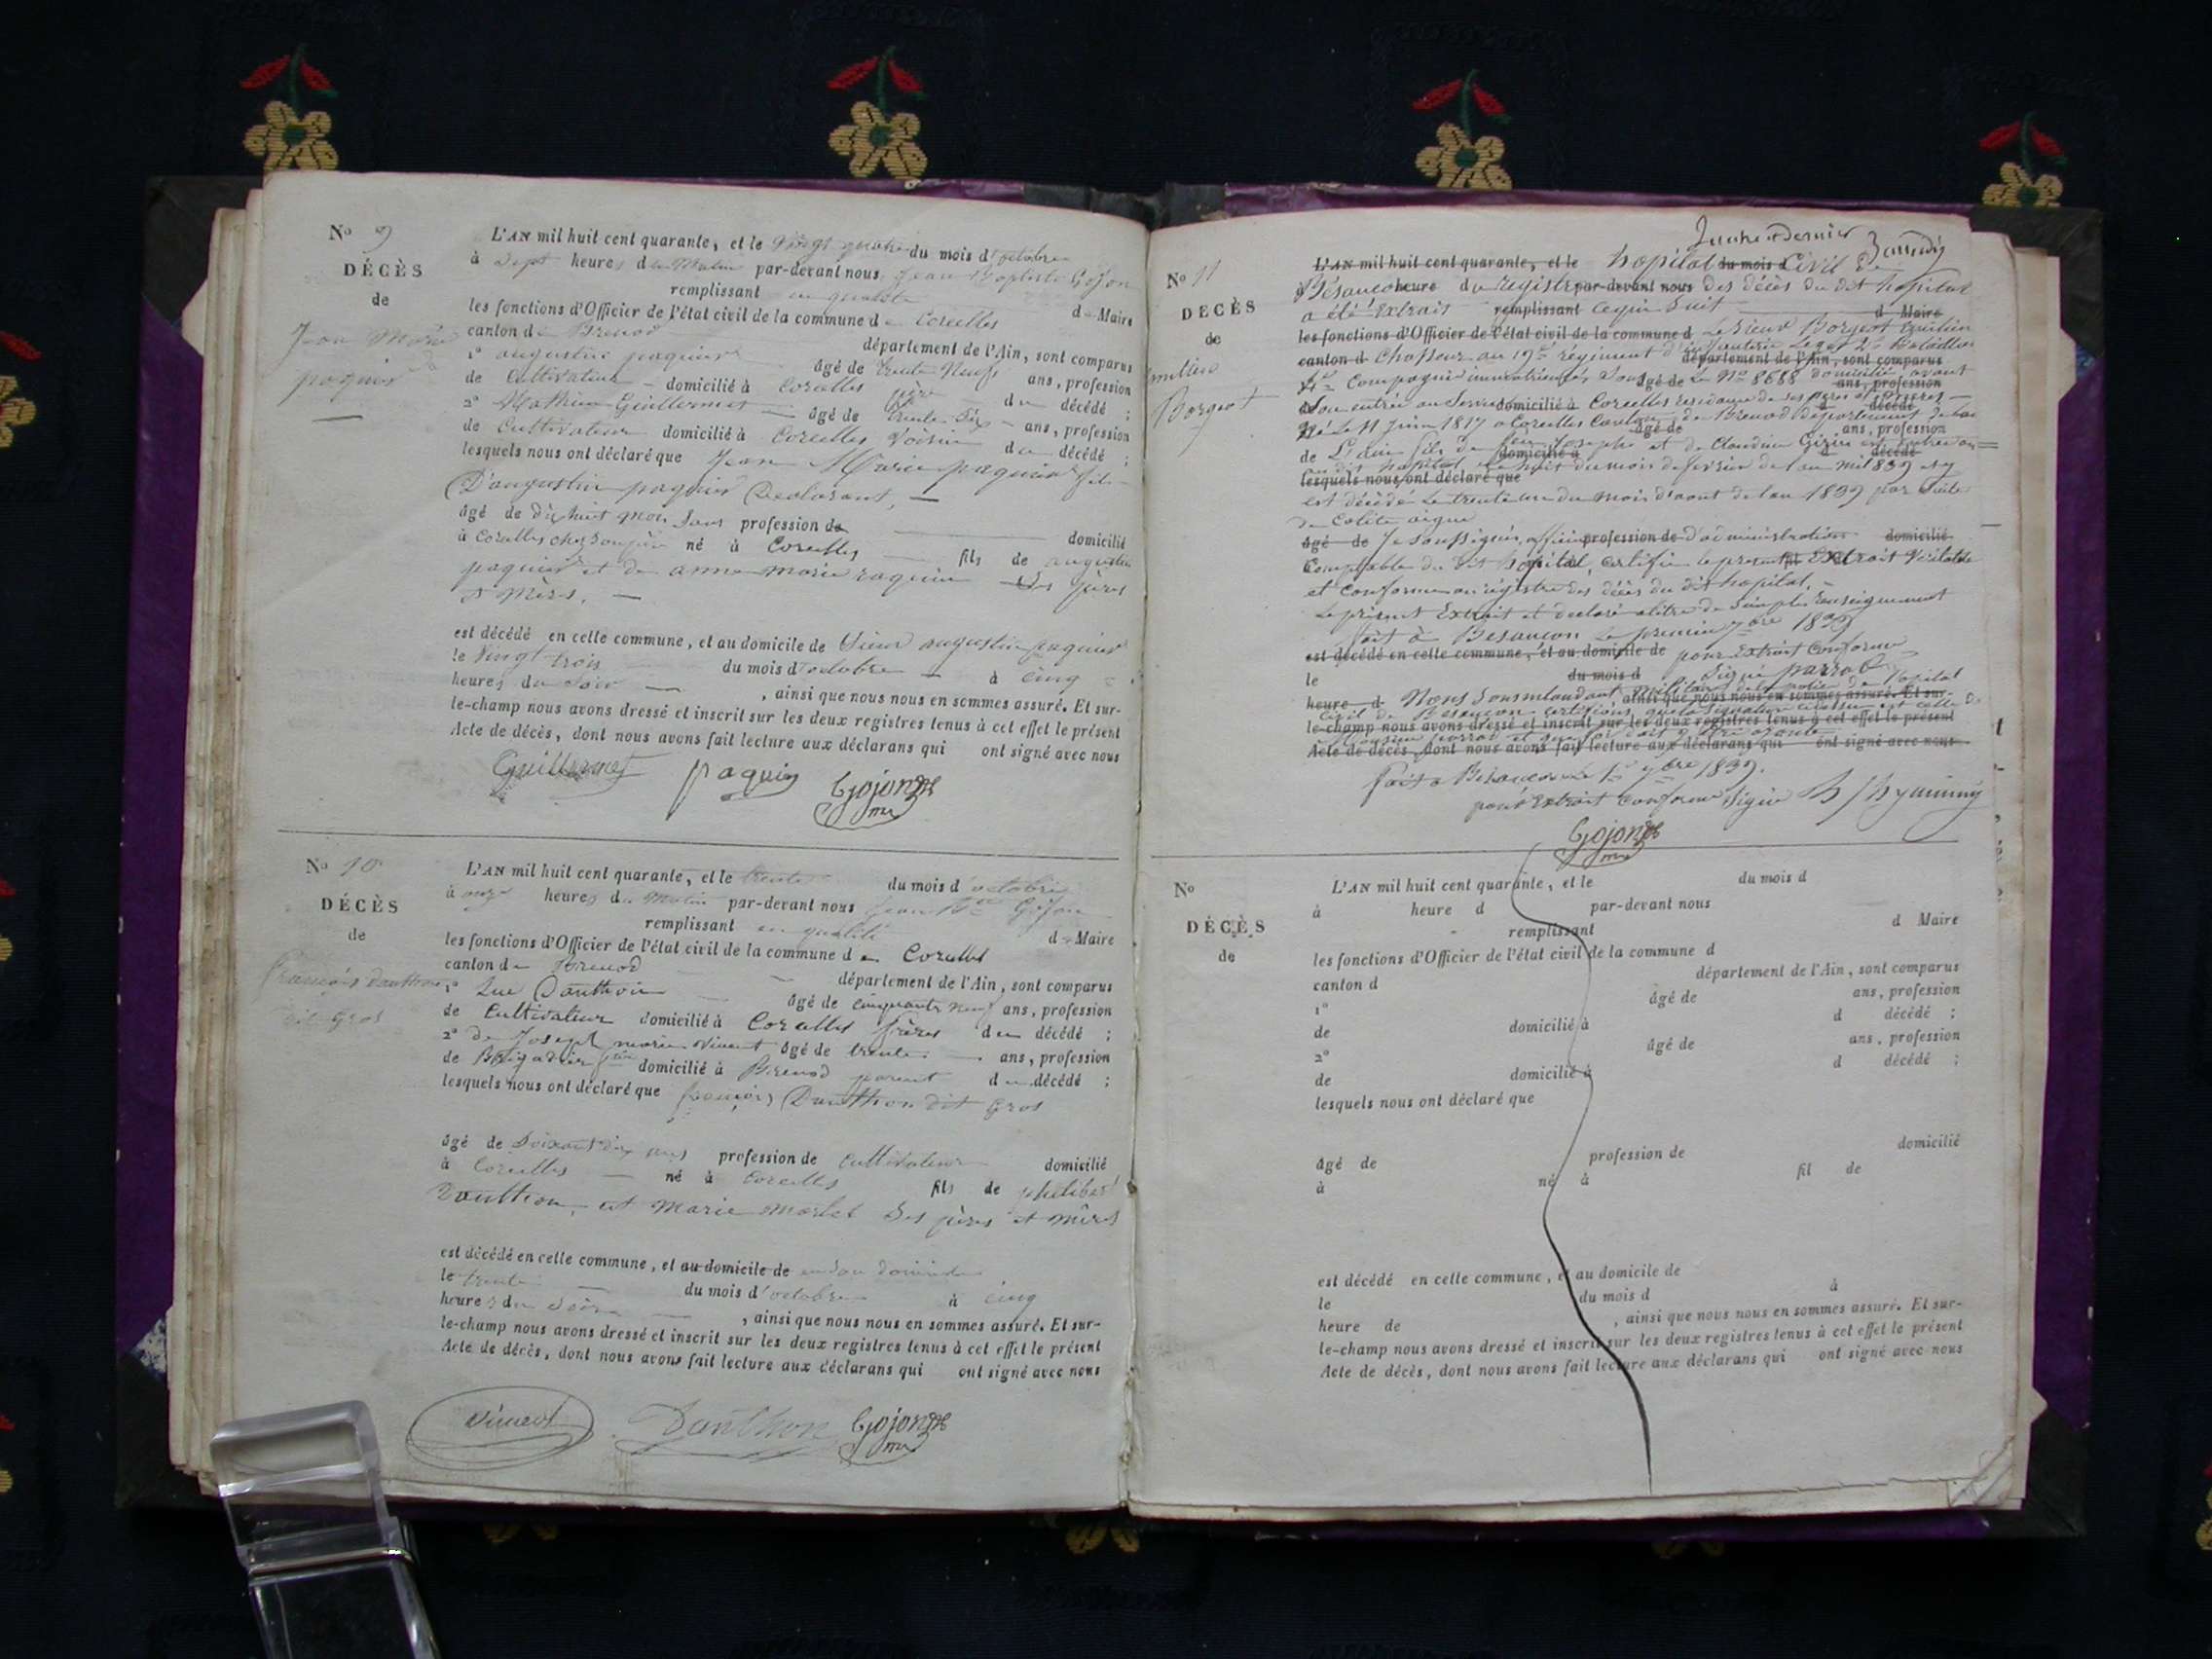 No 9
DÉCÈS
de
Jean Marie
paquier
L'AN mil huit cent quarante, et le Vingt quatre du mois d'octobre
à Sept heures du Matin par-devant nous Jean Baptiste Gojon
remplissant en qualité de Maire
les fonctions d'Officier de l'état civil de la commune de Corcelles
canton de Brenod département de l'Ain, sont comparus
1° augustin paquier âgé de trente Neuf ans, profession
de Cultivateur domicilié à Corcelles père du décédé ;
2° Mathieu Guillermet âgé de trente Six ans, profession
de Cultivateur domicilié à Corcelles Voisin du décédé ;
lesquels nous ont déclaré que Jean Marie paquier fils
D'augustin paquier Declarant,
âgé de dix huit mois Sans profession de domicilié
à Corcelles chez son père né à Corcelles fils de augustin
paquier et de anne marie raquin Ses pères
et mères.
est décédé en celle commune, et au domicile de Sieur augustin paquier
le Vingt trois du mois d'octobre à cinq
heures du Soir , ainsi que nous nous en sommes assuré. Et sur-
le-champ nous avons dressé et inscrit sur les deux registres tenus à cet effet le présent
Acte de décès, dont nous avons fait lecture aux déclarans qui ont signé avec nous
Guillermet paquier Gojon
No 10
DÉCÈS
de
François Danthon
dit Gros
L'AN mil huit cent quarante, et le trente du mois d'octobre
à onze heures du Matin par-devant nous Jean Bte Gojon
remplissant en qualité de Maire
les fonctions d'Officier de l'état civil de la commune de Corcelles
canton de Brenod département de l'Ain, sont comparus
1° Luc Danthon âgé de cinquante neuf ans, profession
de Cultivateur domicilié à Corcelles frères du décédé ;
2° de Joseph marie Vincent âgé de trente ans, profession
de Brigadier domicilié à Brenod parent du décédé ;
lesquels nous ont déclaré que françois Danthon dit Gros
âgé de Soixante dix ans profession de Cultivateur domicilié
à Corcelles né à Corcelles fils de philibert
Danthon et Marie Morlet Ses pères et mères
est décédé en celle commune, et au domicile de en son domicile
le trente du mois d'octobre à cinq
heures du Soir , ainsi que nous nous en sommes assuré. Et sur-
le-champ nous avons dressé et inscrit sur les deux registres tenus à cet effet le présent
Acte de décès, dont nous avons fait lecture aux déclarans qui ont signé avec nous
Vincent Danthon Gojon
No 11
DÉCÈS
de
Emilien
Borgeot
L'AN mil huit cent quarante, et le hopital du mois d Civil de
à Bésancon heure du registre par-devant nous des décès du dit hopital
a été Extrait remplissant ce qui Suit d Maire
les fonctions d'Officier de l'état civil de la commune d Le Sieur Borgeot Emilien
canton d Chasseur au 19e régiment d'infanterie Leger 2e Bataillon
département de l'Ain, sont comparus
1° Compagnie immatriculés Sous âgé de Le No 8688 domicilié avant ans, profession
de Son entrée au Service domicilié à Corcelles residence de ses peres et meres d décédé
Né Le 11 Juin 1817 a Corcelles Canton de Brenod département
âgé de ans, profession
de L'ain fils de feu Joseph et de Claudine
domicilié à d décédé
au dit hopital Le huit du mois de fevrier de l'an mil 839 et y
lesquels nous ont déclaré que
est décédé Le trente un du mois d'aout de l'an 1839 par Suite
de Colite aigue
âgé de Je Soussigné, officier profession de d'administration domicilié
Comptable du dit hopital, Certifie le present Extrait Véritable
et conforme au régistre des décès du dit hopital.
Le présent Extrait est declaré a titre de Simple renseignement
fait à Besancon Le premier 7bre 1839
est décédé en celle commune, et au domicile de pour Extrait Conforme
le du mois d Signé parrot
heure d Nous Sousintendant Militaire
ainsi que nous nous en sommes assuré. Et sur-
civil de Bésancon certifions que la Signature ci dessus est celle de
le-champ nous avons dressé et inscrit sur les deux registres tenus à cet effet le présent
Monsieur parrot et que foi doit y être ajoutée
Acte de décès, dont nous avons fait lecture aux déclarans qui ont signé avec nous
fait a Bésancon Le 1er 7bre 1839.
pour Extrait Conforme Signé
Gojon
No
DÉCÈS
de
L'AN mil huit cent quarante, et le du mois d
à heure d par-devant nous
remplissant d Maire
les fonctions d'Officier de l'état civil de la commune d
canton d département de l'Ain, sont comparus
1° âgé de ans, profession
de domicilié à d décédé ;
2° âgé de ans, profession
de domicilié à d décédé ;
lesquels nous ont déclaré que
âgé de profession de domicilié
à né à fil de
est décédé en celle commune, et au domicile de
le du mois d à
heure de , ainsi que nous nous en sommes assuré. Et sur-
le-champ nous avons dressé et inscrit sur les deux registres tenus à cet effet le présent
Acte de décès, dont nous avons fait lecture aux déclarans qui ont signé avec nous